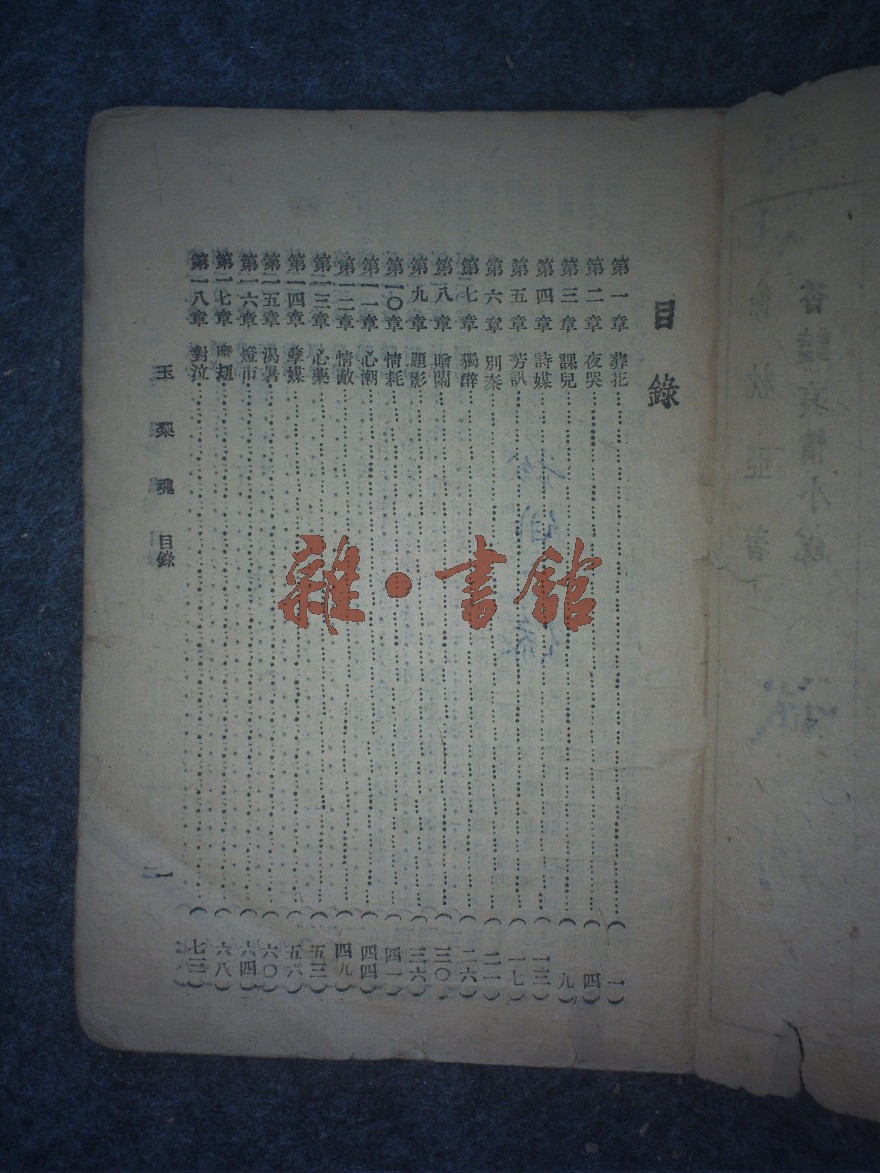 目錄
第一章 葬花……(一)
第二章 夜哭……(四)
第三章 課兒……(九)
第四章 詩媒……(一三)
第五章 芳訊……(一七)
第六章 別秦……(二一)
第七章 獨醉……(二六)
第八章 贈蘭……(三〇)
第九章 題影……(三六)
第一〇章 情耗……(四一)
第一一章 心潮……(四四)
第一二章 情敵……(四九)
第一三章 心藥……(五三)
第一四章 孽媒……(五六)
第一五章 渴暑……(六〇)
第一六章 燈市……(六四)
第一七章 魔劫……(六八)
第一八章 對泣……(七三)
玉梨魂 目錄
一
雜·書館